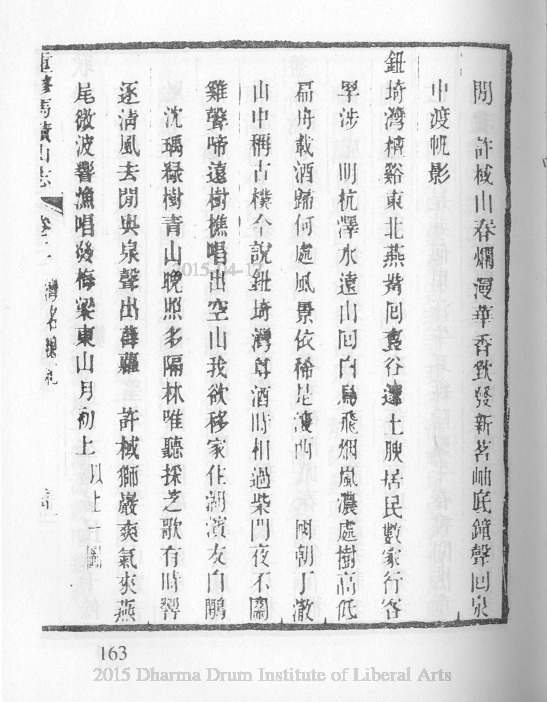 閒　許棫山春爛漫華香致發新茗岫底鐘聲回泉
中渡帆影
鈕埼灣檀谿東北燕回谷邃土腴居民數家行客
罕涉　明杭澤水遠山回白鳥飛烟嵐濃處樹高低
扁舟載酒歸何處風景依稀是瀼西　國朝丁澈
山中稱古樸今說鈕埼灣尊酒時相過柴門夜不關
雞聲啼遠樹樵唱出空山我欲移家住湖濱友白鷳
沈瑀綠樹青山晚照多隔林唯聽採芝歌有時響
逐淸風去閒與泉聲出薜蘿　許棫獅巖爽氣夾燕
尾微波響漁唱發梅梁東山月初上　以上一圖
重修馬蹟山志　卷二　灣名
163
2015 Dharma Drum Institute of Liberal Arts